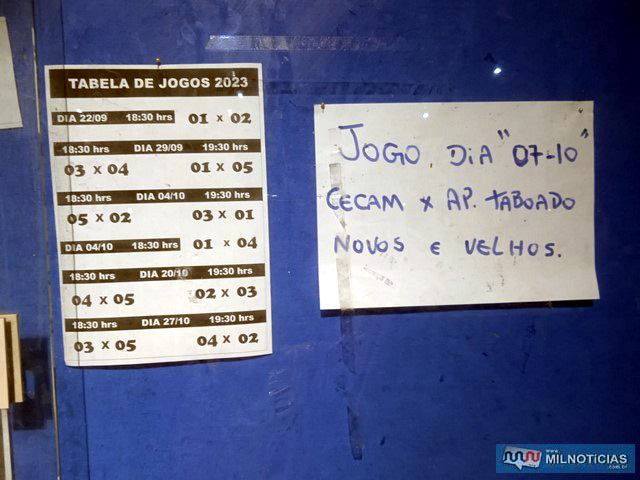 TABELA DE JOGOS 2023
DIA 22/09 18:30 hrs 01 x 02
18:30 hrs DIA 29/09 19:30 hrs
03 x 04 01 x 05
18:30 hrs DIA 04/10 19:30 hrs
05 x 02 03 x 01
DIA 04/10 18:30 hrs 01 x 04
18:30 hrs DIA 20/10 19:30 hrs
04 x 05 02 x 03
18:30 hrs DIA 27/10 19:30 hrs
03 x 05 04 x 02
JOGO. DIA "07-10"
CECAM x AP. TABOADO
NOVOS E VELHOS.
www.
MILNOTICIAS
.com.br